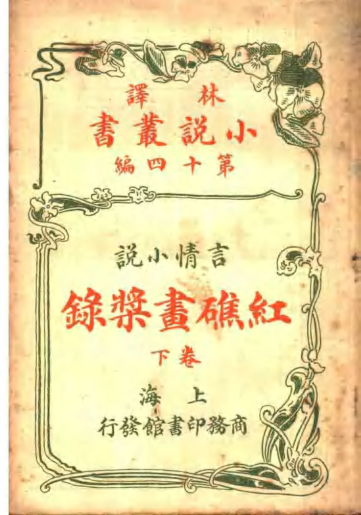 林譯
小說叢書
第十四編
言情小說
紅礁畫槳錄
卷下
上海
商務印書館發行